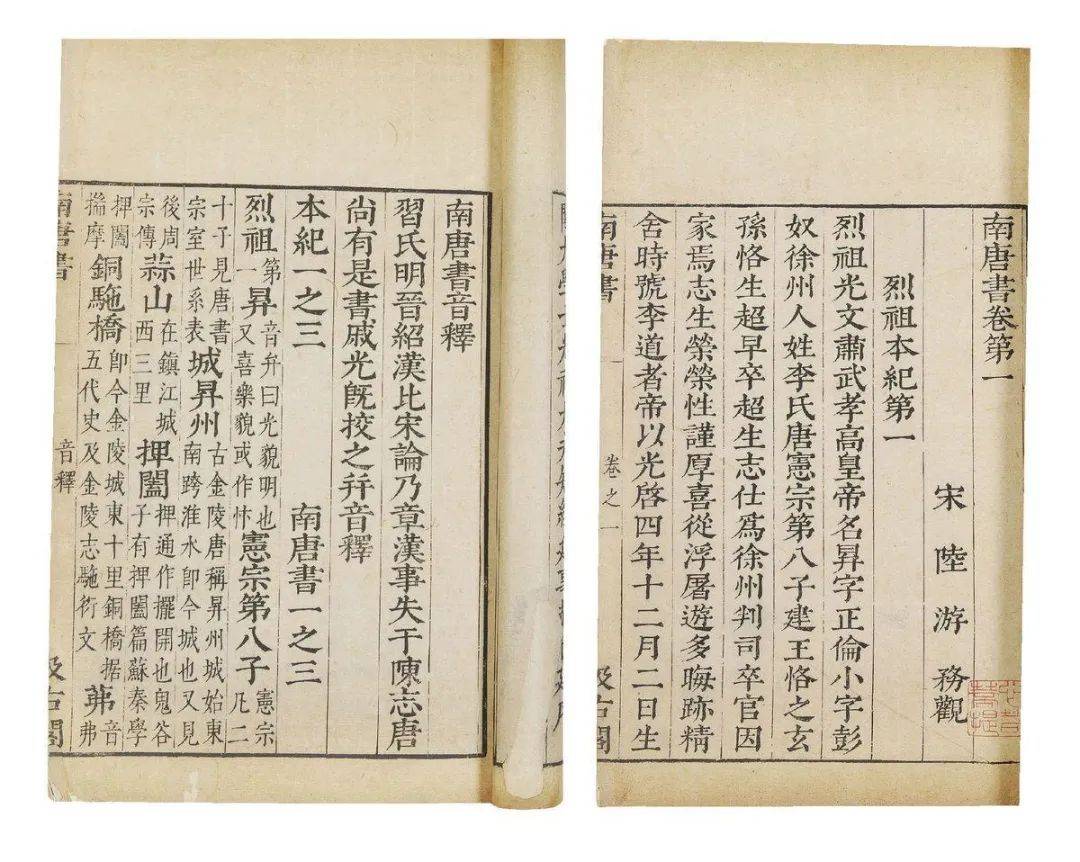 南唐書卷第一
宋陸游務觀
烈祖本紀第一
烈祖光文肅武孝高皇帝名昪字正倫小字彭
奴徐州人姓李氏唐憲宗第八子建王恪之玄
孫恪生超早卒超生志仕爲徐州判司卒官因
家焉志生榮榮性謹厚喜從浮屠遊多晦跡精
舍時號李道者帝以光啓四年十二月二日生
南唐書 卷之一 汲古閣
南唐書音釋
習氏明晉紹漢比宋論乃章漢事失于陳志唐
尙有是書戚光旣挍之幷音釋
本紀一之三 南唐書一之三
烈祖第一昪音弁曰光貌明也又喜樂貌或作忭憲宗第八子憲宗凡二
十子見唐書宗室世系表城昇州古金陵唐稱昇州城始東南跨淮水卽今城也又見
後周宗傳蒜山在鎮江城西三里捭闔捭通作擺開也鬼谷子有捭闔篇蘇秦學
捭闔揣摩銅駞橋卽今金陵城東十里銅橋据五代史及金陵志駞衍文茀音弗
南唐書 音釋 汲古閣